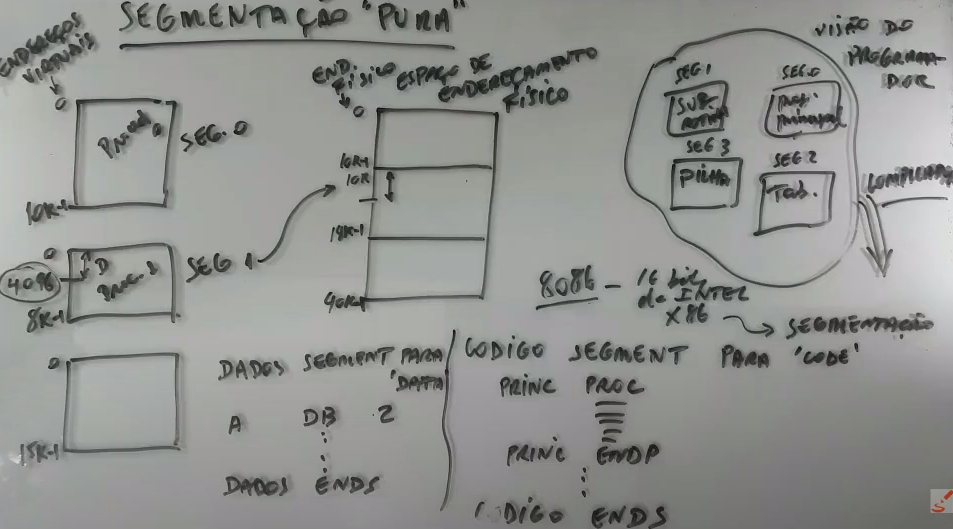 SEGMENTAÇÃO "PURA"
ENDEREÇOS
VIRTUAIS
0
PROC. 0
SEG. 0
10K-1
0
4096
D
SEG 1
8K-1
0
15K-1
END.
FÍSICO
0
ESPAÇO DE
ENDEREÇAMENTO
FÍSICO
10K-1
10K
18K-1
90K-1
VISÃO DO
PROGRAMA-
DOR
SEG 1
SUB-
ROTINA
SEG. 0
PROG.
PRINCIPAL
SEG 3
PILHA
SEG 2
TAB.
COMPILADOR
8086 - 16 bits
do INTEL
X86
SEGMENTAÇÃO
DADOS SEGMENT PARA
'DATA'
A DB 2
DADOS ENDS
CODIGO SEGMENT PARA 'CODE'
PRINC PROC
PRINC ENDP
CODIGO ENDS